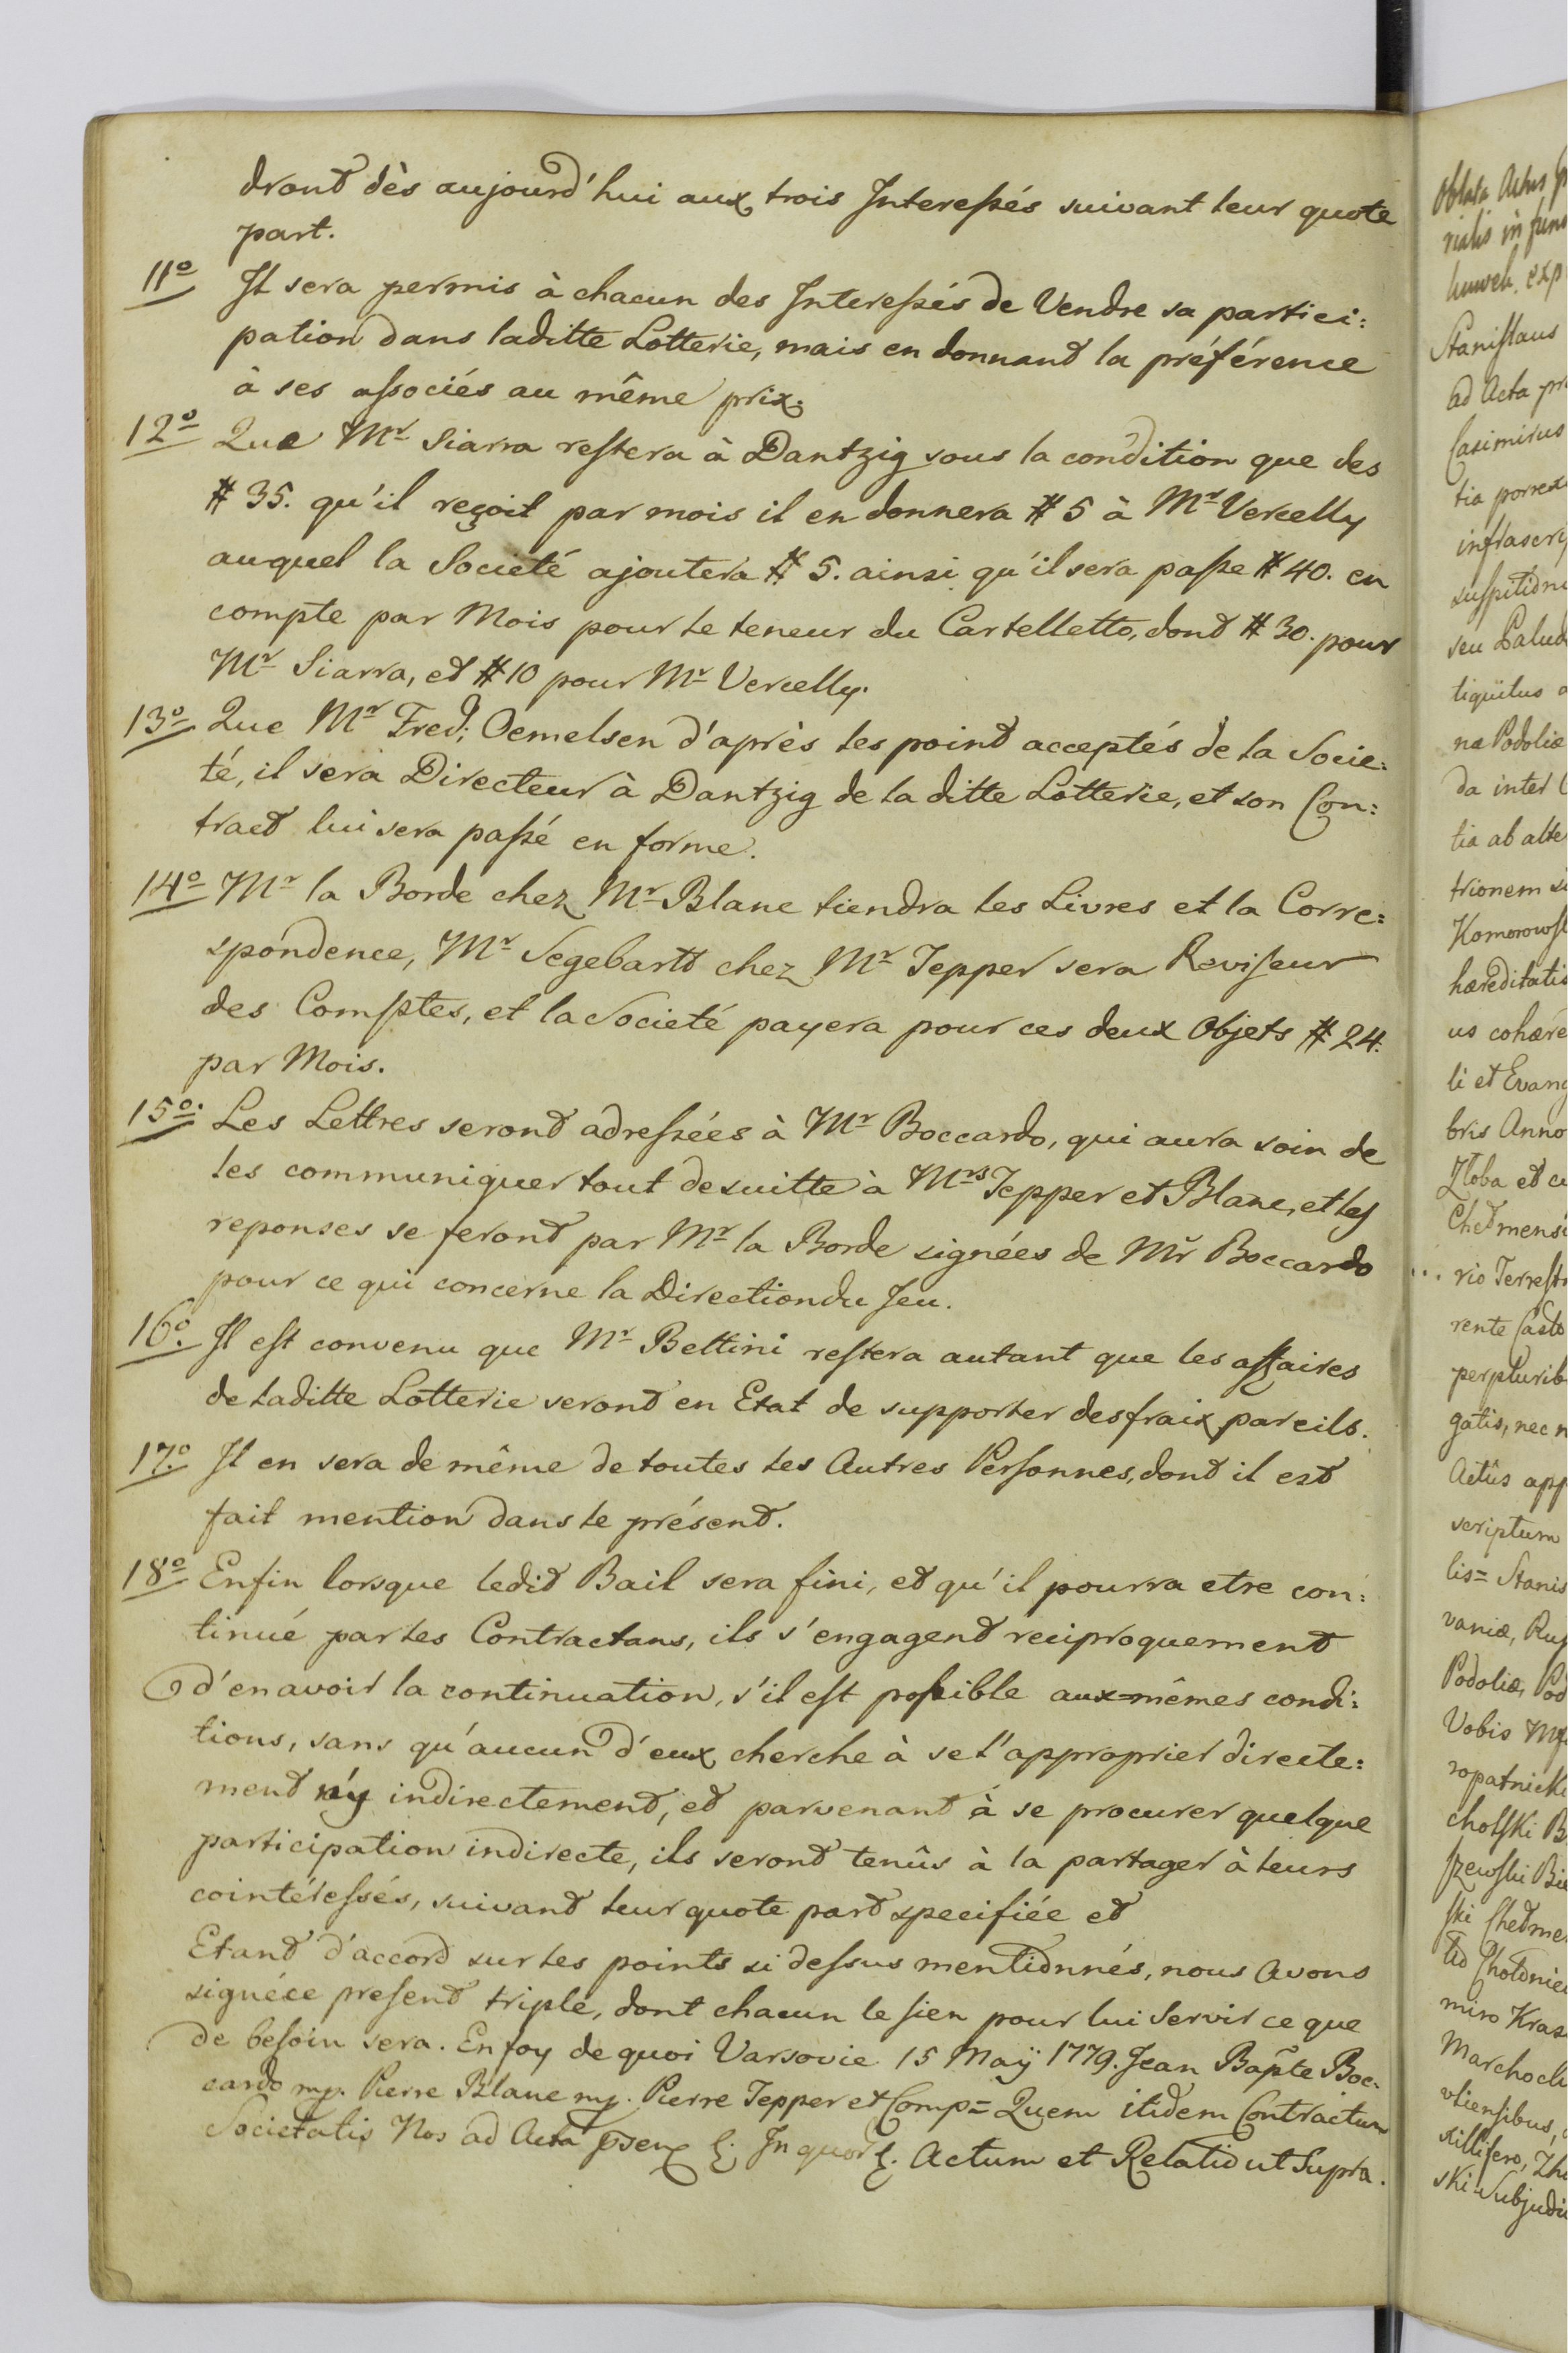 dront dès aujourd'hui aux trois Interessés suivant leur quote
part.
11º Il sera permis à chacun des Interessés de Vendre sa partici:
pation dans laditte Lotterie, mais en donnant la préférence
à ses associés au même prix.
12º Que Mr Siarra restera à Dantzig sous la condition que des
# 35. qu'il reçoit par mois il en donnera # 5 à Mr Vercelly
auquel la Societé ajoutera # 5. ainsi qu'il sera passe # 40. en
compte par Mois pour le teneur du Cartelletto, dont # 30. pour
Mr Siarra, et # 10 pour Mr Vercelly.
13º Que Mr Fred: Oemelsen d'après les point acceptés de la Socie:
té, il sera Directeur à Dantzig de la ditte Lotterie, et son Con:
tract lui sera passé en forme.
14º Mr la Borde chez Mr Blanc tiendra les Livres et la Corre:
spondence, Mr Segebartt chez Mr Tepper sera Reviseur
des Comptes, et la Societé payera pour ces deux Objets # 24.
par Mois.
15º. Les Lettres seront adressées à Mr Boccardo, qui aura soin de
les communiquer tout desuitte à Mrs Tepper et Blanc, et les
reponses se feront par Mr la Borde signées de Mr Boccardo
pour ce qui concerne la Direction du Jeu.
16º. Il est convenu que Mr Bettini restera autant que les affaires
de laditte Lotterie seront en Etat de supporter des fraix pareils.
17.º Il en sera de même de toutes les Autres Personnes, dont il est
fait mention dans le présent.
18º Enfin lorsque ledit Bail sera fini, et qu'il pourra etre con:
tinué par les Contractans, ils s'engagent reciproquement
d'en avoir la continuation, s'il est possible aux mêmes condi:
tions, sans qu'aucun d'eux cherche à se l'approprier directe:
ment n'y indirectement, et parvenant à se procurer quelque
participation indirecte, ils seront tenûs à la partager à leurs
cointéressés, suivant leur quote part specifiée et
Etant d'accord sur les points si dessus mentionnés, nous avons
signé ce present triple, dont chacun le sien pour lui servir ce que
de besoin sera. En foy de quoi Varsovie 15 Maÿ 1779. Jean Bapte Boc-
cardo mp. Pierre Blanc mp. Pierre Tepper et Comp= Quem itidem Contractum
Societatis Nos ad Acta In quor Actum et Relatio ut Supra.
Oblata Actus
rialis in
exp
Stanislaus
ad Acta
Casimirus
tia
infrascrip
seu
na Podoliæ
da inter
tia ab alte
trionem
Komorowsk
hæreditatis
us cohære
li et Evang
bris Anno
Złoba et
Chełmensi
rio Terrest
rente Cast
perplurib
gatis, nec n
Actûs app
scriptum
lis= Stanis
vaniæ, Rus
Podoliæ, Pod
Vobis
ropatnicki
cholski B
szewski Bie
ski Chełme
miro Kras
ski Subjudi